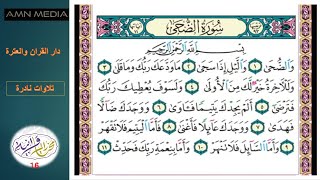 AMN MEDIA
دار القران والعترة
تلاوات نادرة
16
سُورَةُ الضُّحَىٰ
بِسْمِ اللَّهِ الرَّحْمَٰنِ الرَّحِيمِ
وَالضُّحَىٰ ١ وَاللَّيْلِ إِذَا سَجَىٰ ٢ مَا وَدَّعَكَ رَبُّكَ وَمَا قَلَىٰ ٣
وَلَلْآخِرَةُ خَيْرٌ لَّكَ مِنَ الْأُولَىٰ ٤ وَلَسَوْفَ يُعْطِيكَ رَبُّكَ
فَتَرْضَىٰ ٥ أَلَمْ يَجِدْكَ يَتِيمًا فَآوَىٰ ٦ وَوَجَدَكَ ضَالًّا
فَهَدَىٰ ٧ وَوَجَدَكَ عَائِلًا فَأَغْنَىٰ ٨ فَأَمَّا الْيَتِيمَ فَلَا تَقْهَرْ
٩ وَأَمَّا السَّائِلَ فَلَا تَنْهَرْ ١٠ وَأَمَّا بِنِعْمَةِ رَبِّكَ فَحَدِّثْ ١١